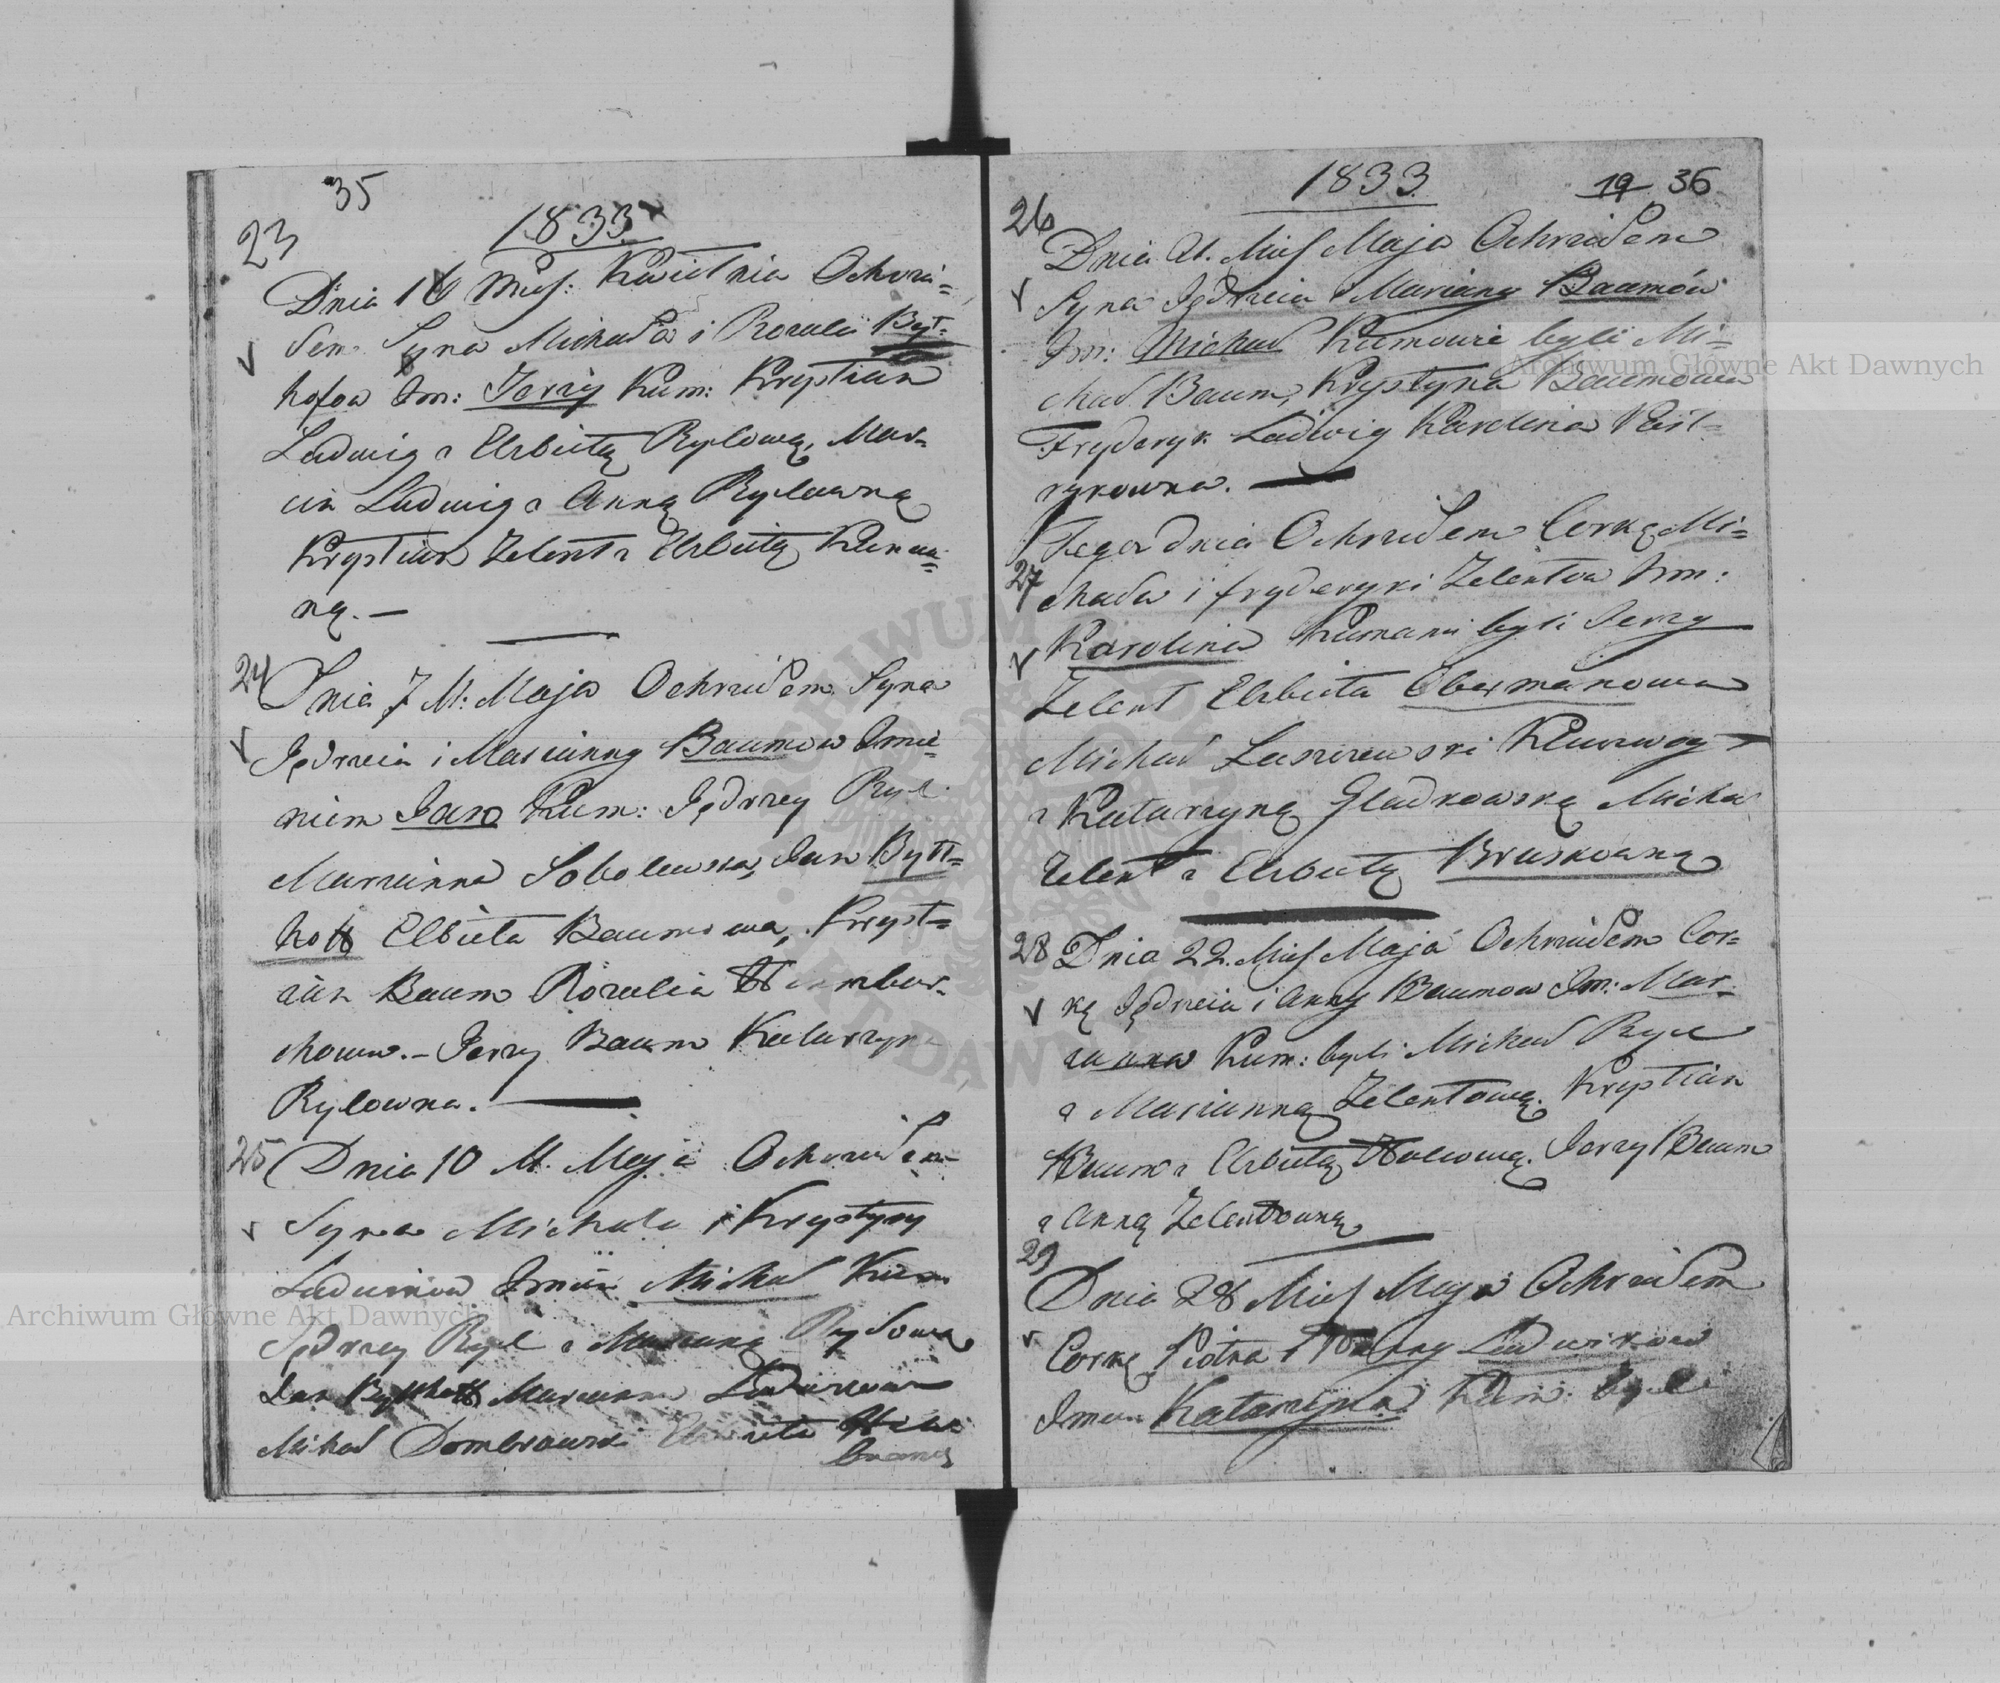 35
1833
23
Dnia 16 Mies: Kwietnia Ochrzci=
łem Syna Michała i Rozalii Byt=
hofow Im: Jerzy Kum: Krystian
Ludwig z Elzbietą Rylową, Mar=
cin Ludwig z Anną Rylowną
Krystian Zelent z Elzbietą
ną. —
24
Dnia 7 M: Maja Ochrzciłem Syna
Jędrzeia i Marianny Baumow Imie=
niem Jan Kum: Jędrzey Ryl
Marianna Sobolewska, Jan Bytt=
hoff Elbieta Baumowa, Kryst=
ian Baum Rozalia
Jerzy Baum Katarzyna
Rylowna. —
25
Dnia 10 M. Maja Ochrzciłem
Syna Michała i Krystyny
Ludwikow Imie: Michał Kum
Jędrzey Ryl z Marianną Rylową
Jan Bytthoff Marianna
Michał Dombrowski
1833
19 36
26
Dnia 21. Mies Maja Ochrzciłem
Syna Jędrzeia i Mariany Baumów
Im: Michał Kumowie byli Mi=
chał Baum, Krystyna Baumowa
Fryderyk Ludwig Karolina
27
Tegoz dnia Ochrzciłem Corkę Mi=
chała i fryderyki Zelentow Im:
Karolina Kumami byli Jerzy
Zelent Elzbieta Obermanowa
Michał
z Katarzyną Gladkowską Michał
Zelent z Elzbietą Bruskowną
28
Dnia 22. Mies Maja Ochrzciłem Cor=
kę Jędrzeia i Anny Baumow Im: Mar=
ianna Kum: byli Michał Ryl
z Marianną Zelentową. Krystian
Baum z Elzbietą Jerzy Baum
z Anną Zelentowną
29
Dnia 28 Mies Maja Ochrzciłem
Corkę Piotra i Anny Ludwikow
Imien Katarzyna Kum: byli
Archiwum Główne Akt Dawnych
Archiwum Główne Akt Dawnych